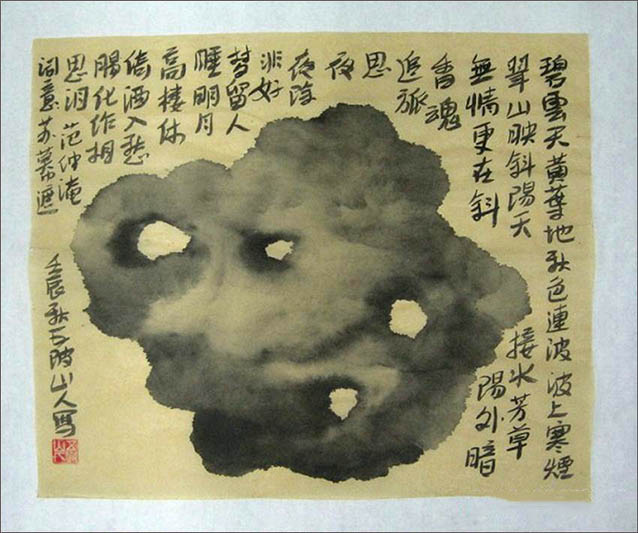 碧雲天黄葉地秋色連波波上寒煙
翠山映斜陽天接水芳草
無情更在斜陽外暗
香魂
追旅
思
夜
夜除
非好
梦留人
睡明月
高樓休
倚酒入愁
腸化作相
思泪 范仲淹
词意苏幕遮
壬辰秋石陂山人写